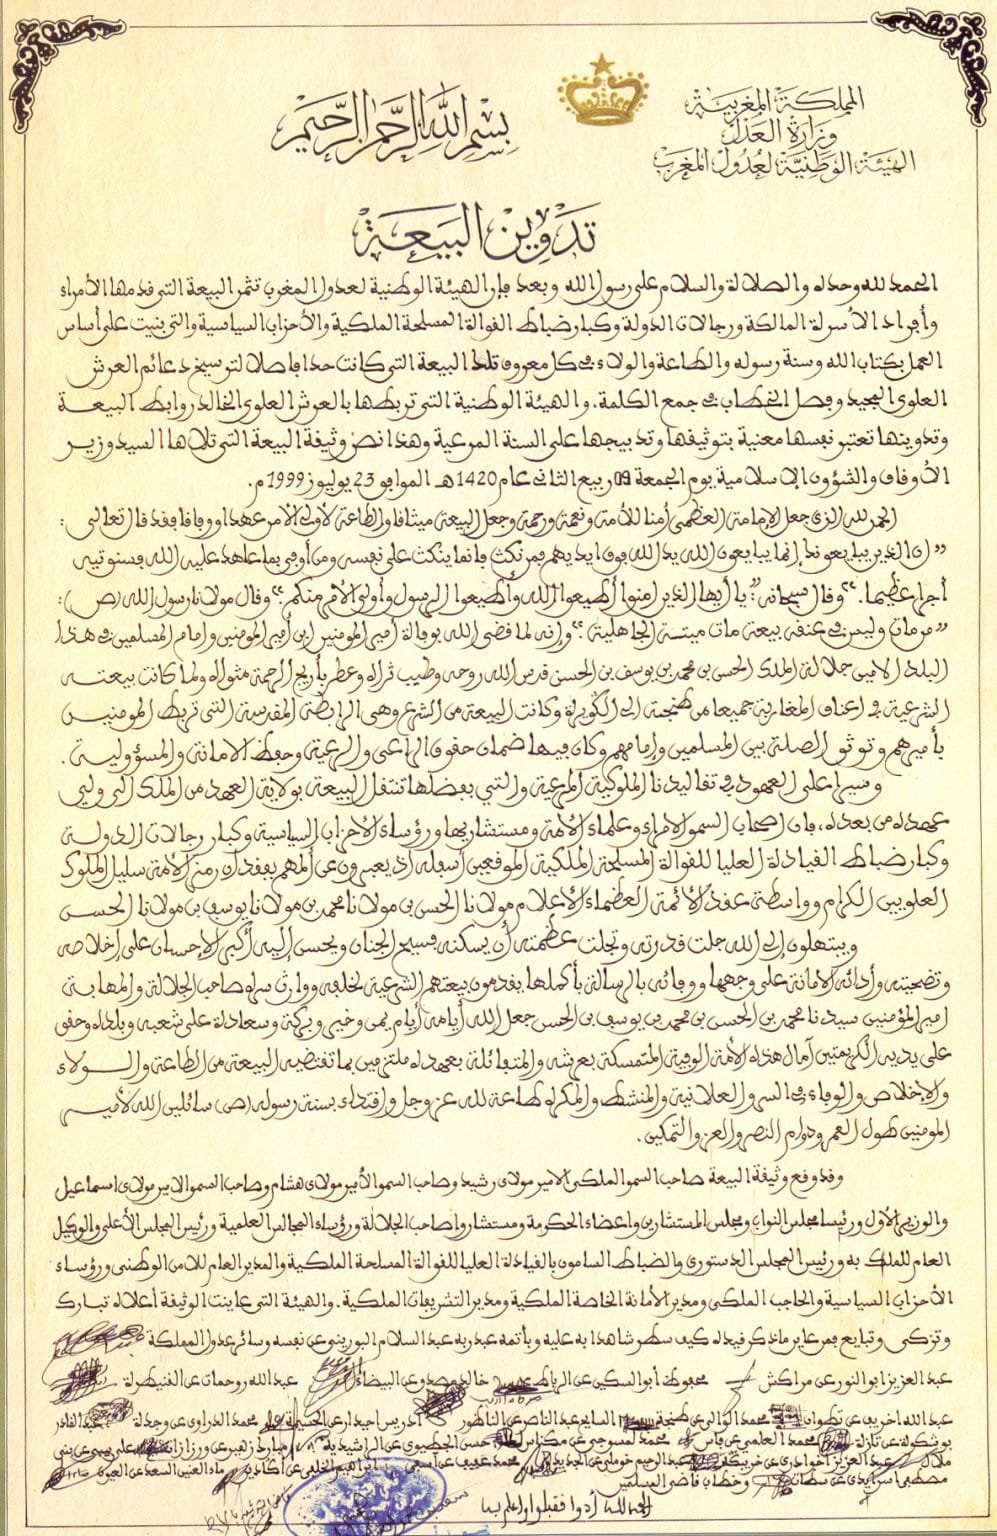 المملكة المغربية
وزارة العدل
الهيئة الوطنية لعدول المغرب
بسم الله الرحمن الرحيم
تدوين البيعة
الحمد لله وحده والصلاة والسلام على رسول الله وبعد فإن الهيئة الوطنية لعدول المغرب تثمن البيعة التي قدمها الأمراء
وأفراد الأسرة المالكة ورجالات الدولة وكبار ضباط القوات المسلحة الملكية والأحزاب السياسية والتي بنيت على أساس
العمل بكتاب الله وسنة رسوله والطاعة والولاء في كل معروف تلك البيعة التي كانت حدا فاصلا لترسيخ دعائم العرش
العلوي المجيد وفصل الخطاب في جمع الكلمة. والهيئة الوطنية التي تربطها بالعرش العلوي الخالد روابط البيعة
وتدوينها تعتبر نفسها معنية بتوثيقها وتدبيجها على السنة المرعية وهذا نص وثيقة البيعة التي تلاها السيد وزير
الأوقاف والشؤون الإسلامية يوم الجمعة 09 ربيع الثاني عام 1420 هـ الموافق 23 يوليوز 1999 م.
الحمد لله الذي جعل الإمامة العظمى أمنا للأمة ونعمة ورحمة وجعل البيعة ميثاقا والطاعة لأولي الأمر عهدا ووفاقا فقد قال تعالى :
"إن الذين يبايعونك إنما يبايعون الله يد الله فوق أيديهم فمن نكث فإنما ينكث على نفسه ومن أوفى بما عاهد عليه الله فسنوتيه
أجرا عظيما." وقال سبحانه: "يا أيها الذين امنوا أطيعوا الله وأطيعوا الرسول وأولي الأمر منكم." وقال مولانا رسول الله (ص) :
"من مات وليس في عنقه بيعة مات ميتة الجاهلية." وإنه لما قضى الله بوفاة أمير المومنين ابن أمير المومنين وإمام المسلمين في هذا
البلد الامين جلالة الملك الحسن بن محمد بن يوسف بن الحسن قدس الله روحه وطيب ثراه وعطر بأريج الرحمة مثواه ولما كانت بيعته
الشرعية في أعناق المغاربة جميعا من طنجة إلى الكويرة وكانت البيعة من الشرع وهي الرابطة المقدسة التي تربط المومنين
بأميرهم وتوثق الصلة بين المسلمين وإمامهم وكان فيها ضمان حقوق الراعي والرعية وحفظ الامانة والمسؤولية.
وسيرا على المعهود في تقاليدنا الملوكية المرعية والتي بفضلها تنتقل البيعة بولاية العهد من الملك إلى ولي
عهده من بعده، فإن أصحاب السمو الامراء وعلماء الأمة ومستشاريها ورؤساء الأحزاب السياسية وكبار رجالات الدولة
وكبار ضباط القيادة العليا للقوات المسلحة الملكية الموقعين أسفله إذ يعبرون عن ألمهم بفقدان رمز الأمة سليل الملوك
العلويين الكرام وواسطة عقد الأئمة العظماء الأعلام مولانا الحسن بن مولانا محمد بن مولانا يوسف بن مولانا الحسن
ويبتهلون إلى الله جلت قدرته وتجلت عظمته أن يسكنه فسيح الجنان ويحسن إليه أكبر الإحسان على إخلاصه
وتضحيته وأدائه الأمانة على وجهها ووفائه بالرسالة بأكملها يقدمون بيعتهم الشرعية لخلفه ووارث سره صاحب الجلالة والمهابة
أمير المؤمنين سيدنا محمد بن الحسن بن محمد بن يوسف بن الحسن جعل الله أيامه أيام يمن وخير وبركة وسعادة على شعبه وبلده وحقق
على يديه الكريمتين آمال هذه الأمة الوفية المتمسكة بعرشه والمتفائلة بعهده ملتزمين بما تقتضيه البيعة من الطاعة والولاء
والإخلاص والوفاء في السر والعلانية والمنشط والمكره طاعة لله عز وجل واقتداء بسنة رسوله (ص) سائلين الله لأمير
المومنين طول العمر ودوام النصر والعز والتمكين.
وقد وقع وثيقة البيعة صاحب السمو الملكي الامير مولاي رشيد وصاحب السمو الأمير مولاي هشام وصاحب السمو الامير مولاي اسماعيل
والوزير الأول ورئيسا مجلس النواب ومجلس المستشارين واعضاء الحكومة ومستشاروا صاحب الجلالة ورؤساء المجالس العلمية ورئيس المجلس الأعلى والوكيل
العام للملك به ورئيس المجلس الدستوري والضباط السامون بالقيادة العليا للقوات المسلحة الملكية والمدير العام للامن الوطني ورؤساء
الأحزاب السياسية والحاجب الملكي ومدير الأمانة الخاصة الملكية ومدير التشريفات الملكية. والهيئة التي عاينت الوثيقة أعلاه تبارك
وتزكي وتبايع فمن عاين ما ذكر قيده كيف سطر شاهدا به عليه وبأتمه عبد ربه عبد السلام البوريني عن نفسه وسائر عدول المملكة
عبد العزيز ابو النور عن مراكش محفوظ أبو السكين عن الرباط خالد مصدق عن البيضاء عبد الله روحمات عن القنيطرة
عبد الله اخريف عن تطوان محمد الوالي عن طنجة السايح عبد الناصر عن الناظور ادريس اجيدار عن الحسيمة محمد الدراوي عن وجدة عبد القادر
بوشكولة عن تازة محمد العلمي عن فاس محمد لمسوجي عن مكناس حسن الخطيوي عن الراشيدية مبارك زهير عن ورزازات علي يسي عن بني
ملال عبد العزيز اخوادري عن خريبكة عبد الرحيم خوملي عن الجديدة محمد عفيف عن آسفي ابراهيم الخلفي عن أكادير ماء العينين السعد عن العيون
مصطفى عن سطات وخطاب قاضي المسلمين
الحمد لله أدوا فقبلوا واعلم بها